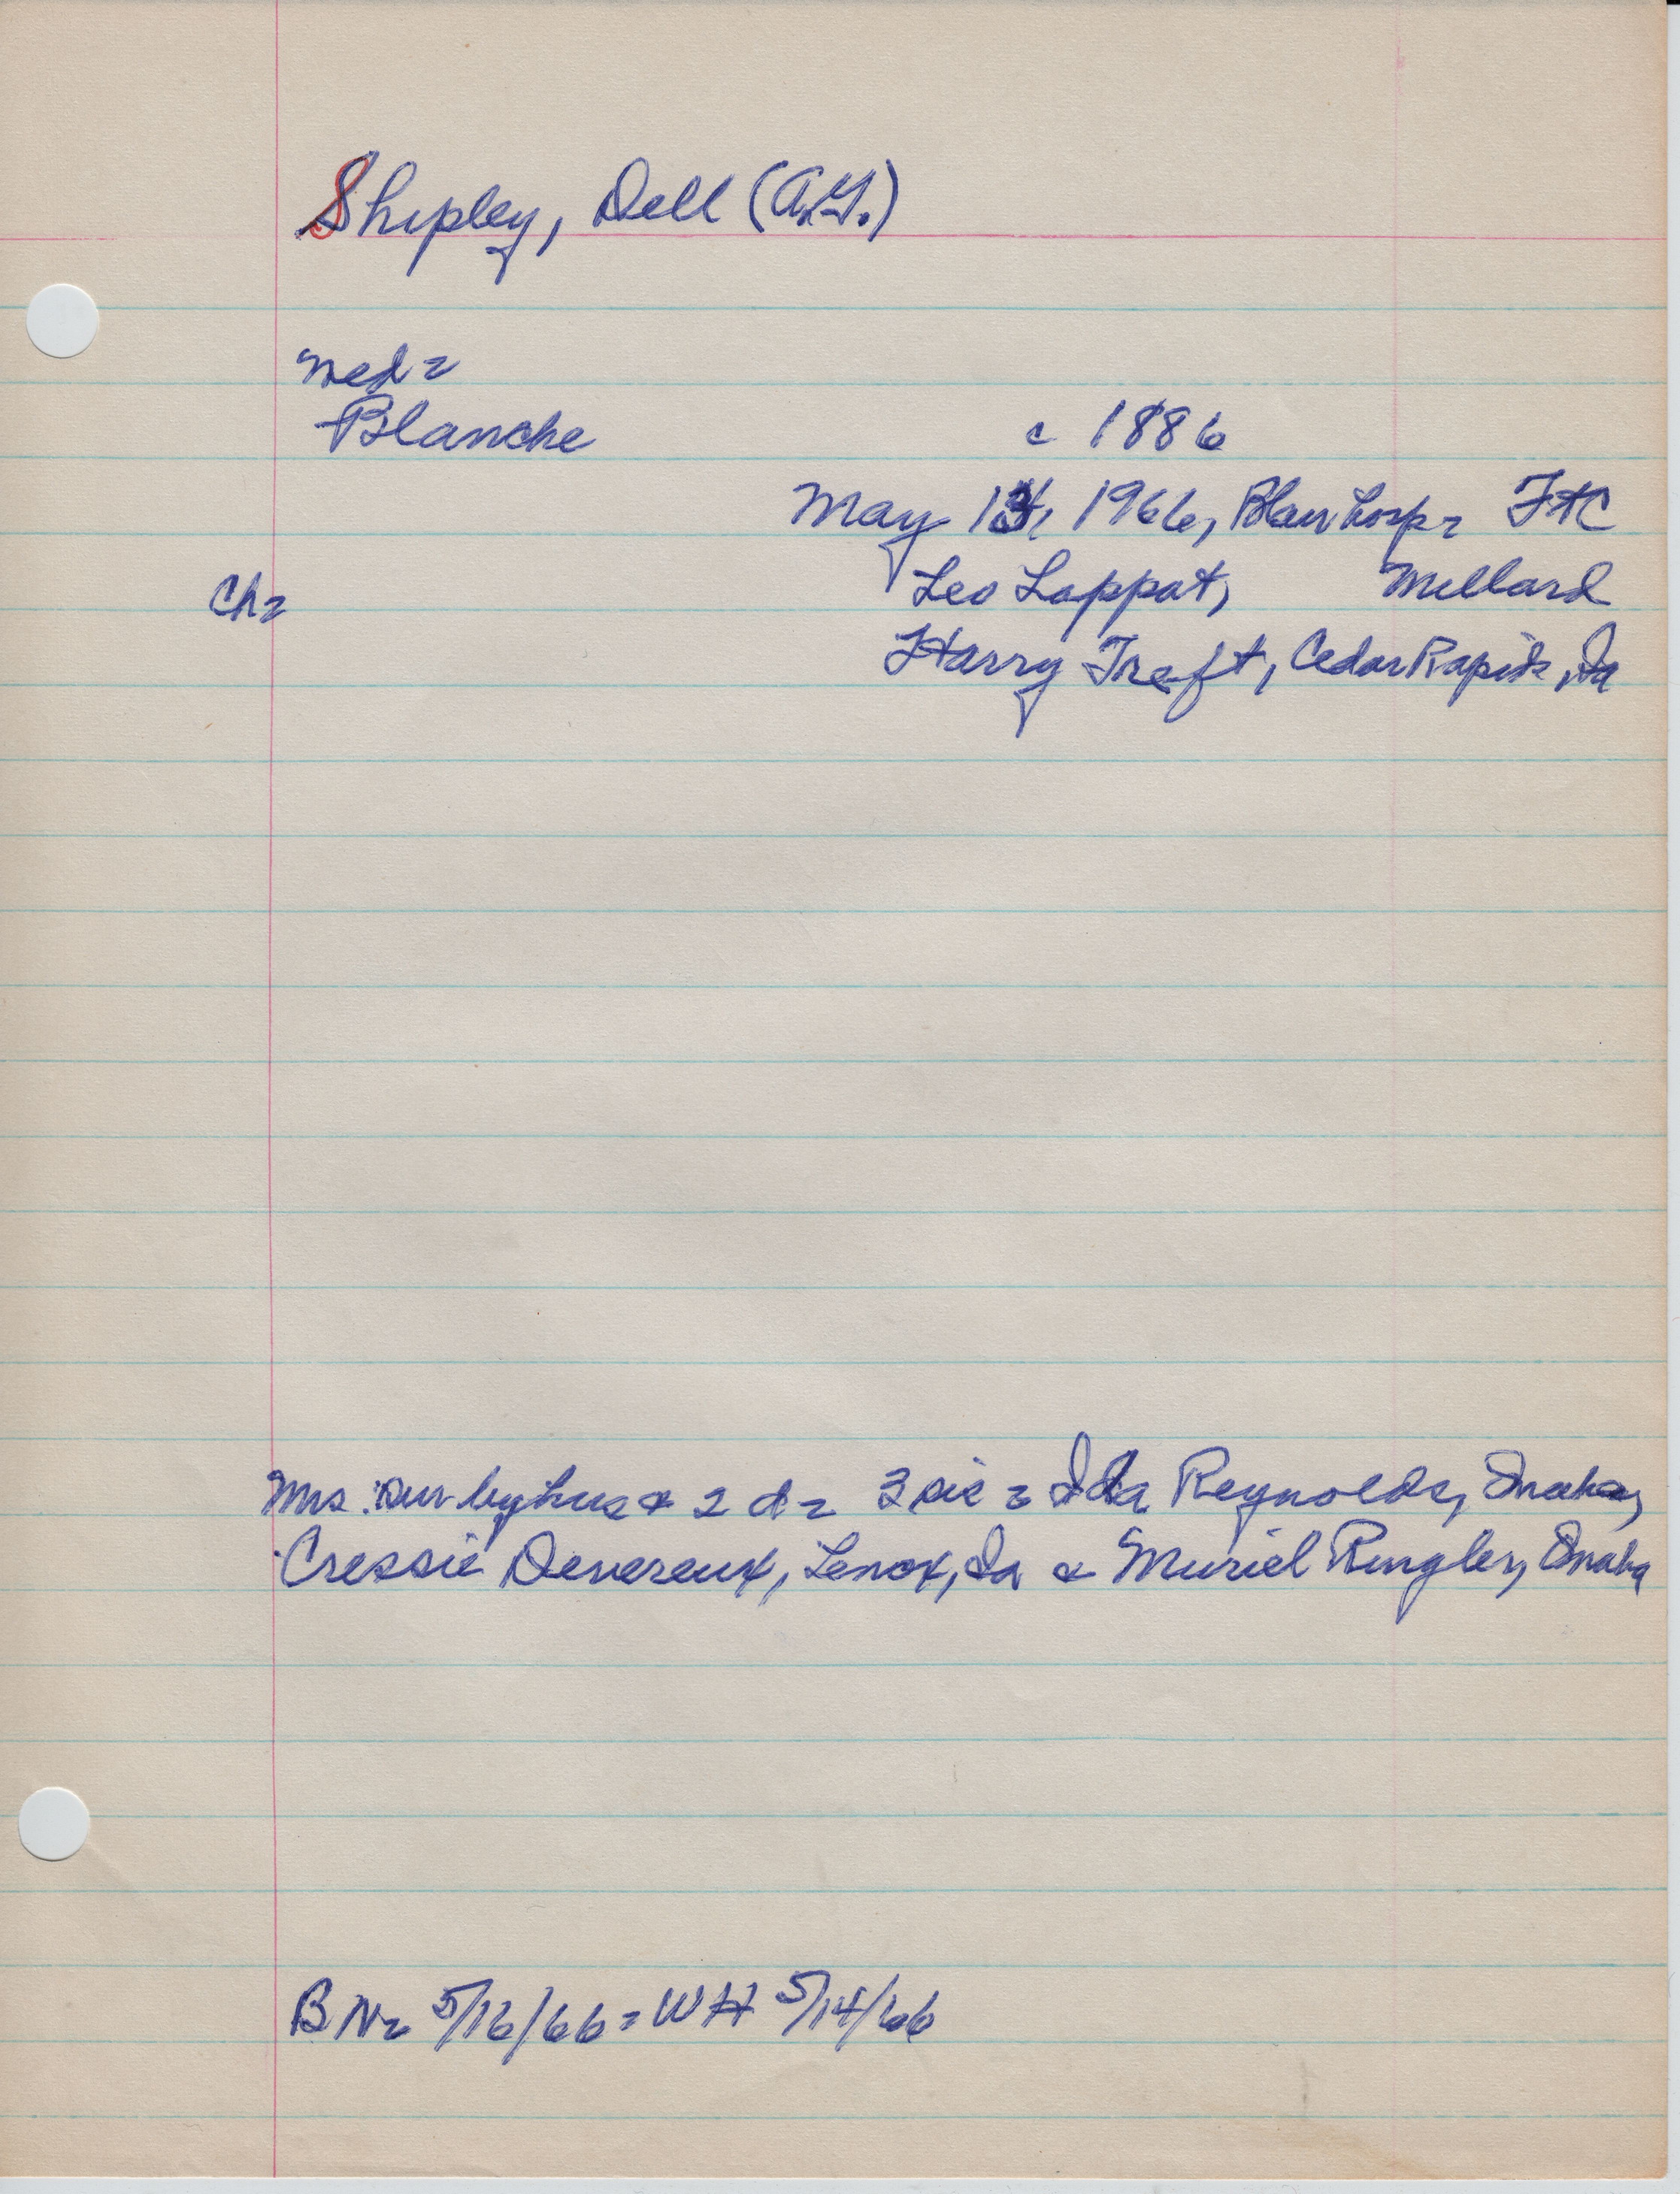 Shipley, Dell (A.Y.)
Med =
Blanche c 1886
May 13, 1966, Blair hosp = FtC
Ch = Leo Lappat, Millard
Harry Treft, Cedar Rapids, Ia
Mrs. sur by hus & 2 d = 3 sis = Ida Reynolds, Omaha,
Cressie Devereux, Lenox, Ia & Muriel Ringler, Omaha
BN = 5/16/66 = WH 5/14/66